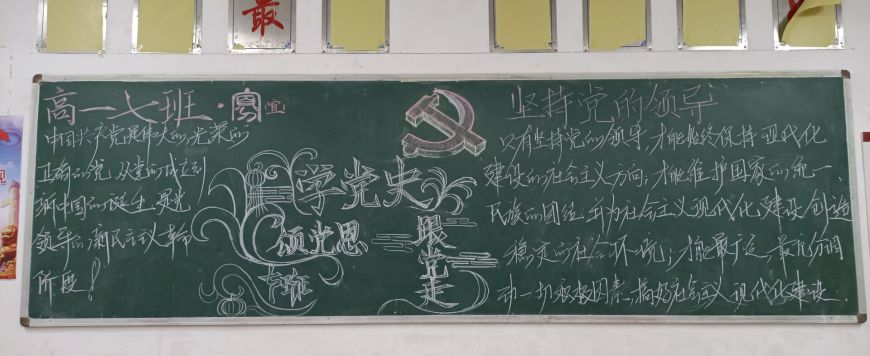 最
高一七班·宣
中国共产党是伟大的光荣的
正确的党,从党的成立到
新中国的诞生是党
领导的新民主主义革命
阶段!
学党史
颂党恩
跟党走
坚持党的领导
只有坚持党的领导,才能始终保持现代化
建设的社会主义方向;才能维护国家的统一、
民族的团结,并为社会主义现代化建设创造
稳定的社会环境;才能最广泛、最充分调
动一切积极因素,搞好社会主义现代化建设.